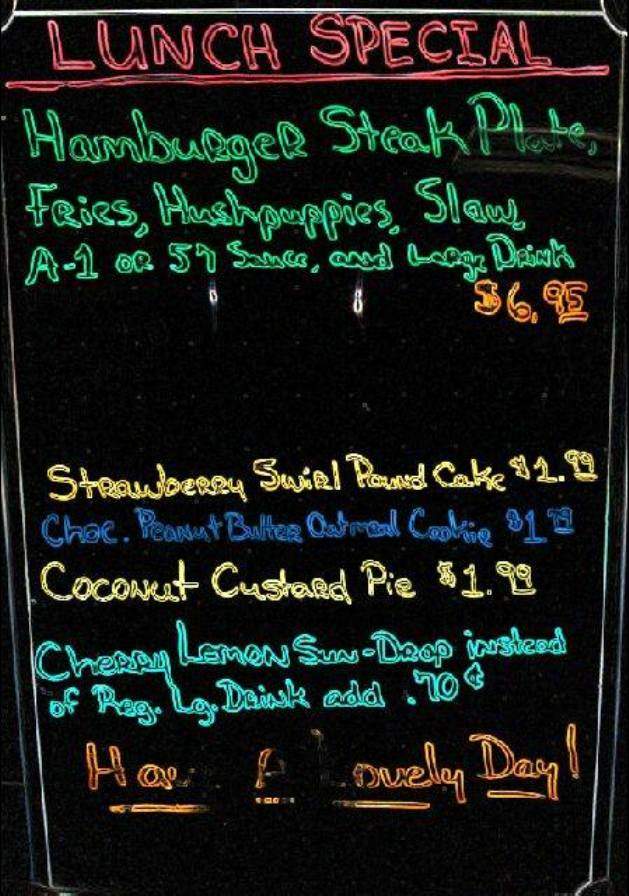 LUNCH SPECIAL
Hamburger Steak Plate,
Fries, Hushpuppies, Slaw,
A-1 or 57 Sauce, and Large Drink
$6.95
Strawberry Swirl Pound Cake $1.99
Choc. Peanut Butter Oatmeal Cookie $1.79
Coconut Custard Pie $1.99
Cherry Lemon Sun-Drop instead
of Reg. Lg. Drink add .70¢
Have A Lovely Day!